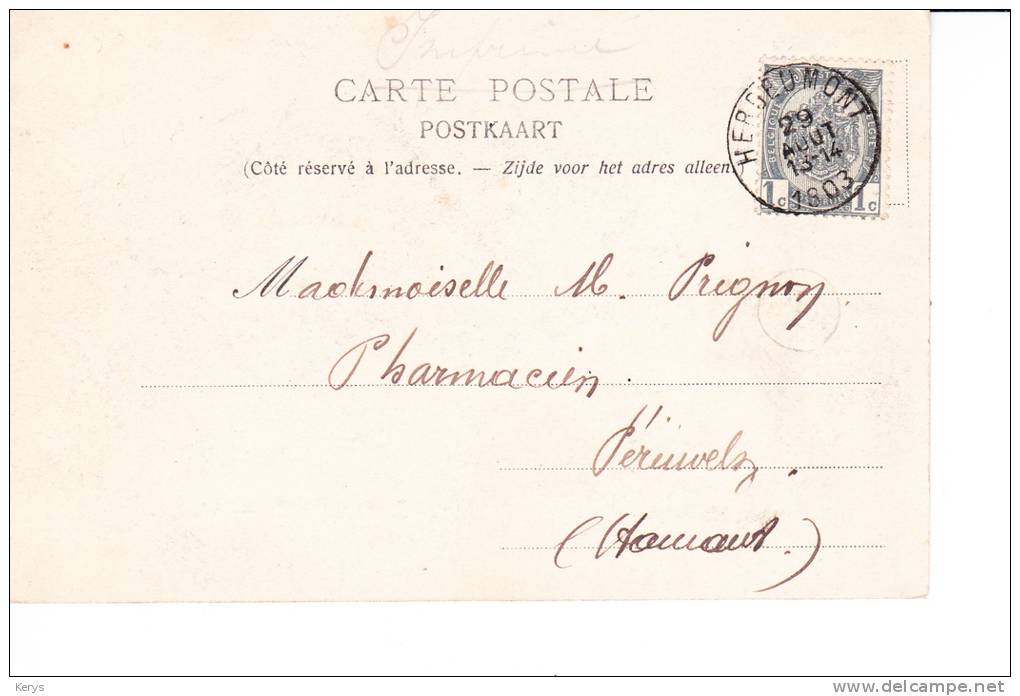 Imprimé
CARTE POSTALE
POSTKAART
(Côté réservé à l'adresse. — Zijde voor het adres alleen.
HERBEUMONT
29
AOUT
13-14
1903
BELGIQUE
BELGIE
1c 1c
Mademoiselle M. Prignon
Pharmacien
Péruwelz.
(Hainaut.)
Kerys
delcampe.net